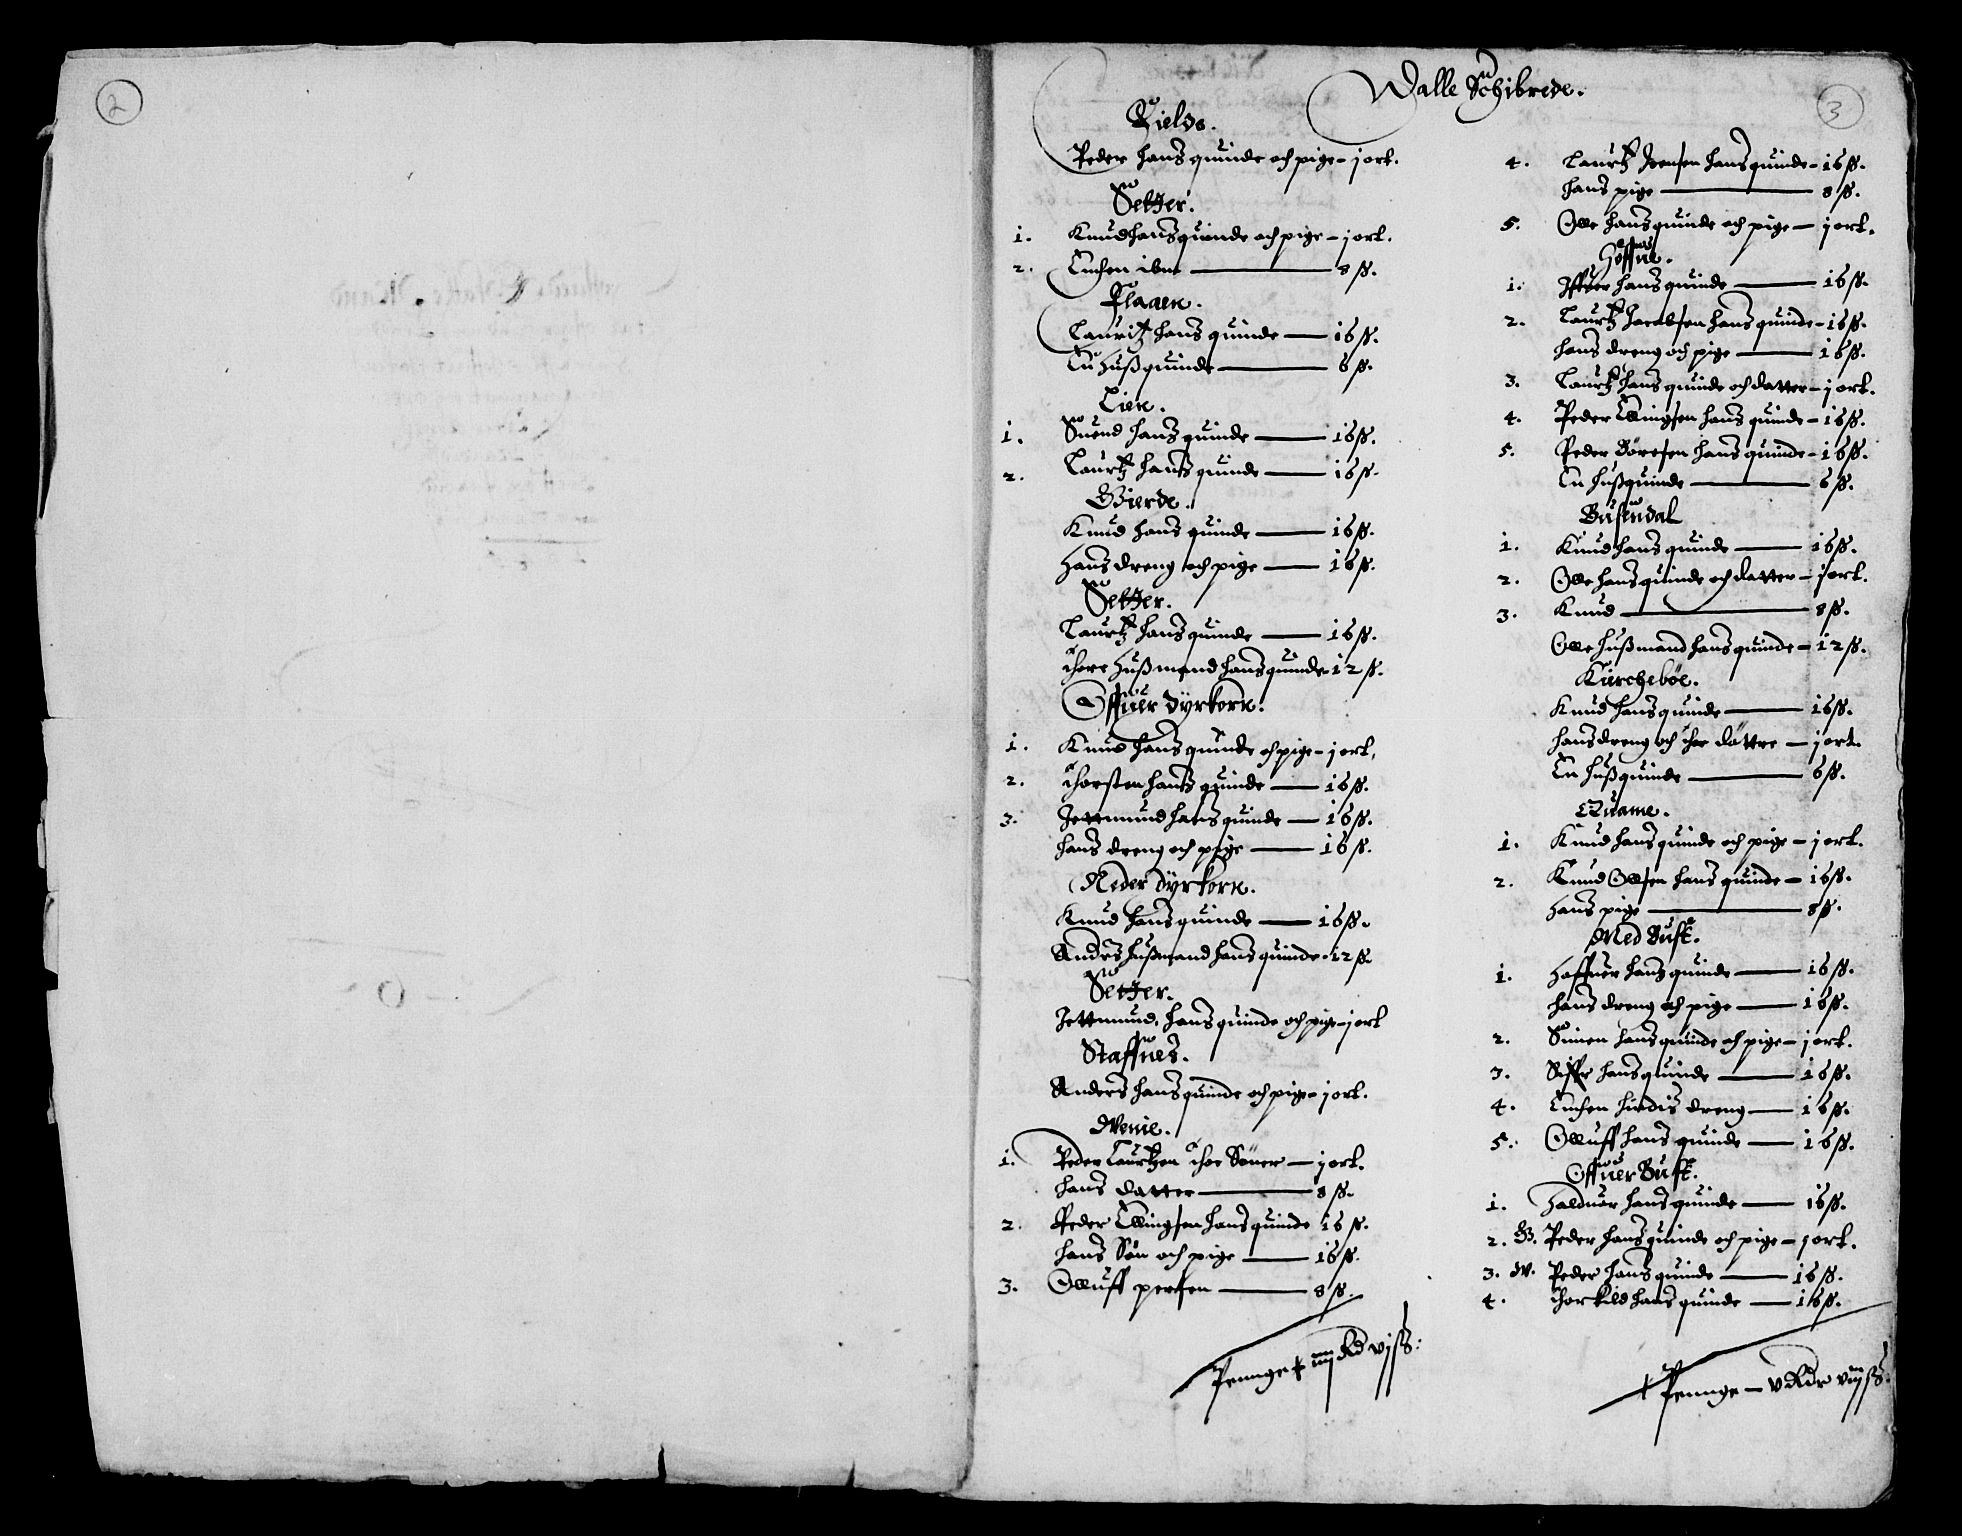 2
3
Walle Schibrede.
Kielde.
Peder hans quinde och pige – j ort.
Setter.
1. Knud hans quinde och pige – j ort.
2. Enchen ibm — 8 ß.
Flaaen.
Lauritz hans quinde — 16 ß.
En Hußquinde — 6 ß.
Lien.
1. Suend hans quinde — 16 ß.
2. Laurtz hans quinde — 16 ß.
Gierde.
Knud hans quinde — 16 ß.
Hans dreng och pige — 16 ß.
Setter.
Lauritz hans quinde — 16 ß.
Thore Hußmand hans quinde – 12 ß.
Offuer dyrkorn.
1. Knud hans quinde och pige – j ort.
2. Thorsten hans quinde — 16 ß.
3. Jettmund hans quinde — 16 ß.
hans dreng och pige — 16 ß.
Neder dyrkorn.
Knud hans quinde — 16 ß.
Anders hußmand hans quinde – 12 ß.
Setter.
Jettmund, hans quinde och pige – j ort
Staffnes.
Anders hans quinde och pige – j ort.
Weme.
1. Peder Laurtzen thoe Søner — j ort.
hans datter — 8 ß.
2. Peder Ellingsen hans quinde 16 ß.
hans Søn och pige — 16 ß.
3. Olluff persen — 8 ß.
Penge iiij Rd vj ß:
4. Laurtz Joensen hans quinde – 16 ß.
hans pige — 8 ß.
5. Olle hans quinde och pige — j ort.
Høffne.
1. Iffuer hans quinde — 16 ß.
2. Laurtz Jacobsen hans quinde – 16 ß.
hans dreng och pige — 16 ß.
3. Laurtz hans quinde och datter – j ort.
4. Peder Ellingsen hans quinde – 16 ß.
5. Peder Børesen hans quinde – 16 ß.
En hußquinde — 6 ß.
Busundal
1. Knud hans quinde — 16 ß.
2. Olle hans quinde och datter – j ort.
3. Knud — 8 ß.
Olle hußmand hans quinde – 12 ß.
Kierchebøe.
Knud hans quinde — 16 ß.
hans dreng och thoe døttre — j ort.
En hußquinde — 6 ß.
Quame.
1. Knud hans quinde och pige – j ort.
2. Knud Ollsen hans quinde – 16 ß.
Hans pige — 8 ß.
Ned Bust.
1. Haffuor hans quinde — 16 ß.
hans dreng och pige — 16 ß.
2. Simen hans quinde och pige – j ort.
3. Siffr hans quinde — 16 ß.
4. Enchen hindis dreng — 16 ß.
5. Olluff hans quinde — 16 ß.
Offuer Bust.
1. Halduor hans quinde — 16 ß.
2. G. Peder hans quinde och pige – j ort.
3. W. Peder hans quinde — 16 ß.
4. Thorkild hans quinde — 16 ß.
Penge — v Rdr viij ß.